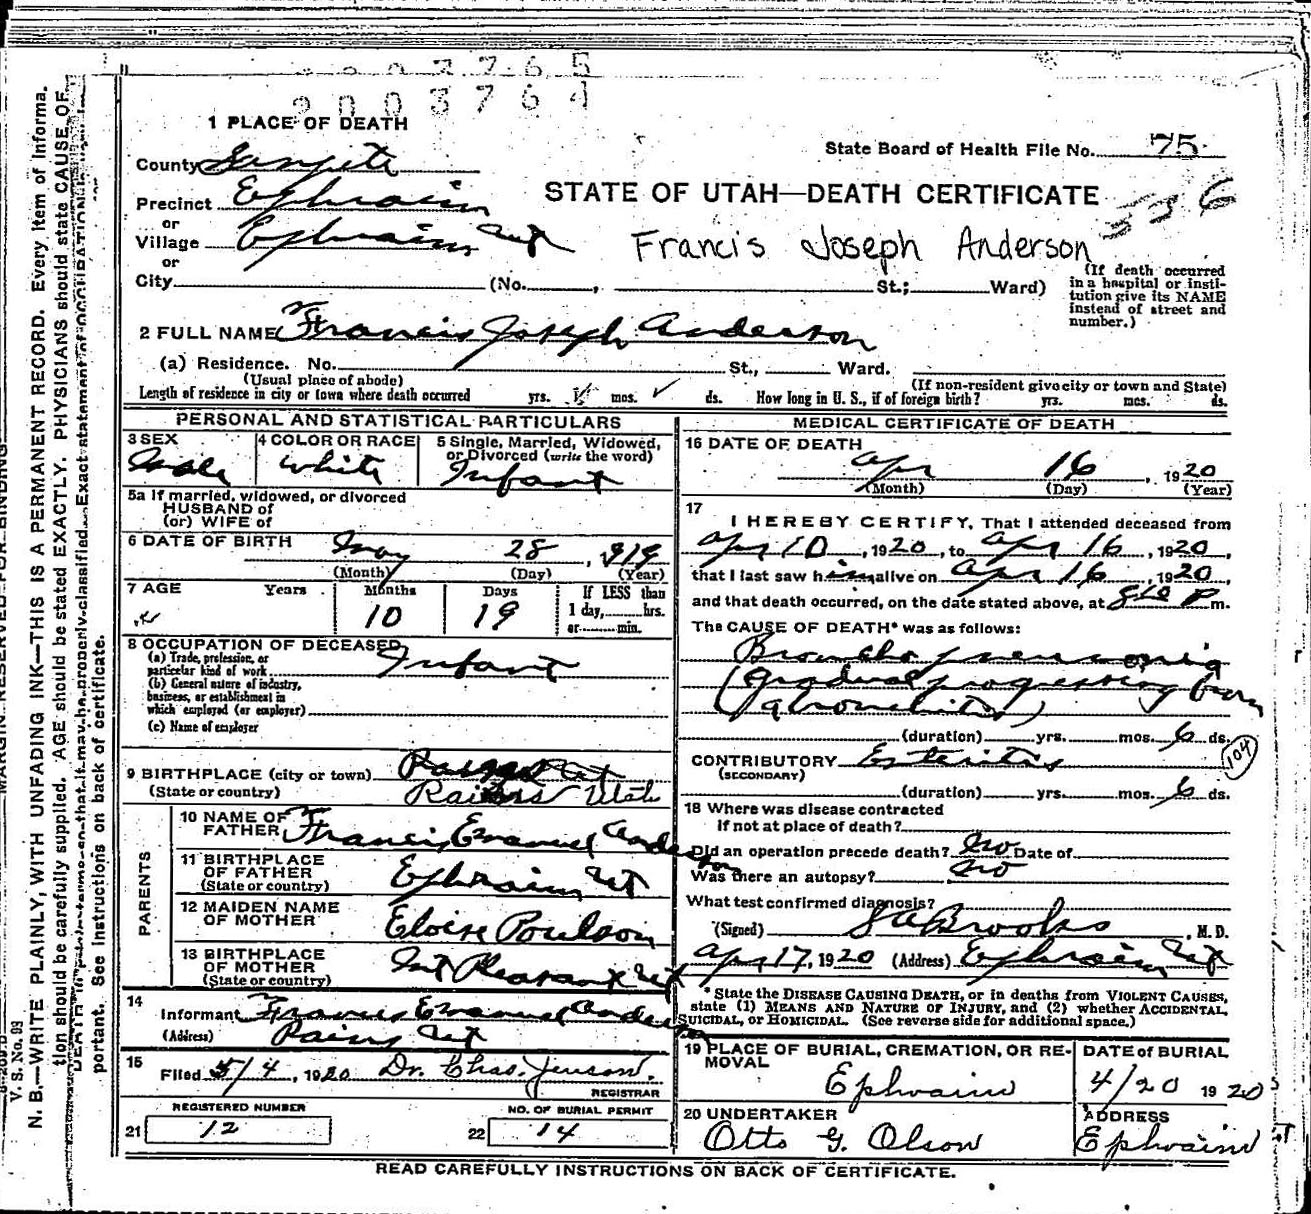 2003765
2003764
1 PLACE OF DEATH
County Sanpete
State Board of Health File No. 75
Precinct Ephraim
STATE OF UTAH—DEATH CERTIFICATE
336
or
Village Ephraim Ut
Francis Joseph Anderson
or
City (No. , St.; Ward)
(If death occurred
in a hospital or insti-
tution give its NAME
instead of street and
number.)
2 FULL NAME Francis Joseph Anderson
(a) Residence. No. St., Ward.
(Usual place of abode) (If non-resident give city or town and State)
Length of residence in city or town where death occurred yrs. mos. ds. How long in U. S., if of foreign birth? yrs. mos. ds.
PERSONAL AND STATISTICAL PARTICULARS
3 SEX 4 COLOR OR RACE 5 Single, Married, Widowed,
or Divorced (write the word)
Male White Infant
5a If married, widowed, or divorced
HUSBAND of
(or) WIFE of
6 DATE OF BIRTH May 28, 1919
(Month) (Day) (Year)
7 AGE Years Months Days If LESS than
1 day, hrs.
or min.
10 19
8 OCCUPATION OF DECEASED
(a) Trade, profession, or
particular kind of work Infant
(b) General nature of industry,
business, or establishment in
which employed (or employer)
(c) Name of employer
9 BIRTHPLACE (city or town)
(State or country) Utah
PARENTS
10 NAME OF
FATHER Francis Emanuel Anderson
11 BIRTHPLACE
OF FATHER Ephraim Ut
(State or country)
12 MAIDEN NAME
OF MOTHER Eloise Poulson
13 BIRTHPLACE
OF MOTHER Mt Pleasant Ut
(State or country)
14
Informant Francis Emanuel Anderson
(Address) Rains Ut
15
Filed 5/4, 1920 Dr. Chas. Jenson.
REGISTRAR
REGISTERED NUMBER NO. OF BURIAL PERMIT
21 12 22 14
MEDICAL CERTIFICATE OF DEATH
16 DATE OF DEATH
Apr 16, 1920
(Month) (Day) (Year)
17
I HEREBY CERTIFY, That I attended deceased from
Apr 10, 1920, to Apr 16, 1920,
that I last saw him alive on Apr 16, 1920,
and that death occurred, on the date stated above, at 810 P m.
The CAUSE OF DEATH* was as follows:
Broncho pneumonia
(gradual progressing from
a bronchitis)
(duration) yrs. mos. 6 ds.
104
CONTRIBUTORY Enteritis
(SECONDARY)
(duration) yrs. mos. 6 ds.
18 Where was disease contracted
if not at place of death?
Did an operation precede death? No Date of
Was there an autopsy? No
What test confirmed diagnosis?
(Signed) Brooks, M. D.
Apr 17, 1920 (Address) Ephraim Ut
*State the DISEASE CAUSING DEATH, or in deaths from VIOLENT CAUSES,
state (1) MEANS AND NATURE OF INJURY, and (2) whether ACCIDENTAL,
SUICIDAL, or HOMICIDAL. (See reverse side for additional space.)
19 PLACE OF BURIAL, CREMATION, OR RE-
MOVAL
Ephraim
DATE of BURIAL
4/20 1920
20 UNDERTAKER
Otto G. Olson
ADDRESS
Ephraim
READ CAREFULLY INSTRUCTIONS ON BACK OF CERTIFICATE.
MARGIN RESERVED FOR BINDING
V. S. No. 93
N. B.—WRITE PLAINLY, WITH UNFADING INK—THIS IS A PERMANENT RECORD. Every item of informa-
tion should be carefully supplied. AGE should be stated EXACTLY. PHYSICIANS should state CAUSE OF
DEATH in plain terms so that it may be properly classified. Exact statement of OCCUPATION is
portant. See instructions on back of certificate.